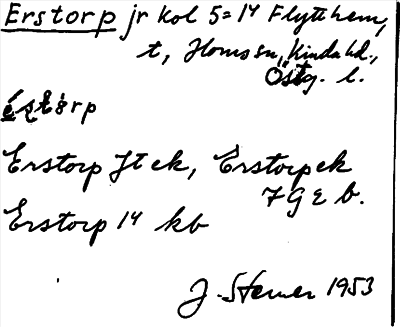 Erstorp jr kol 5=14 Flytthem,
t, Homsn, Kinda hd.,
Östg. l.
éstòrp
Erstorp Jt ek, Erstorp ek
7 G Ε b.
Erstorp 14 kb
J. Sterner 1953